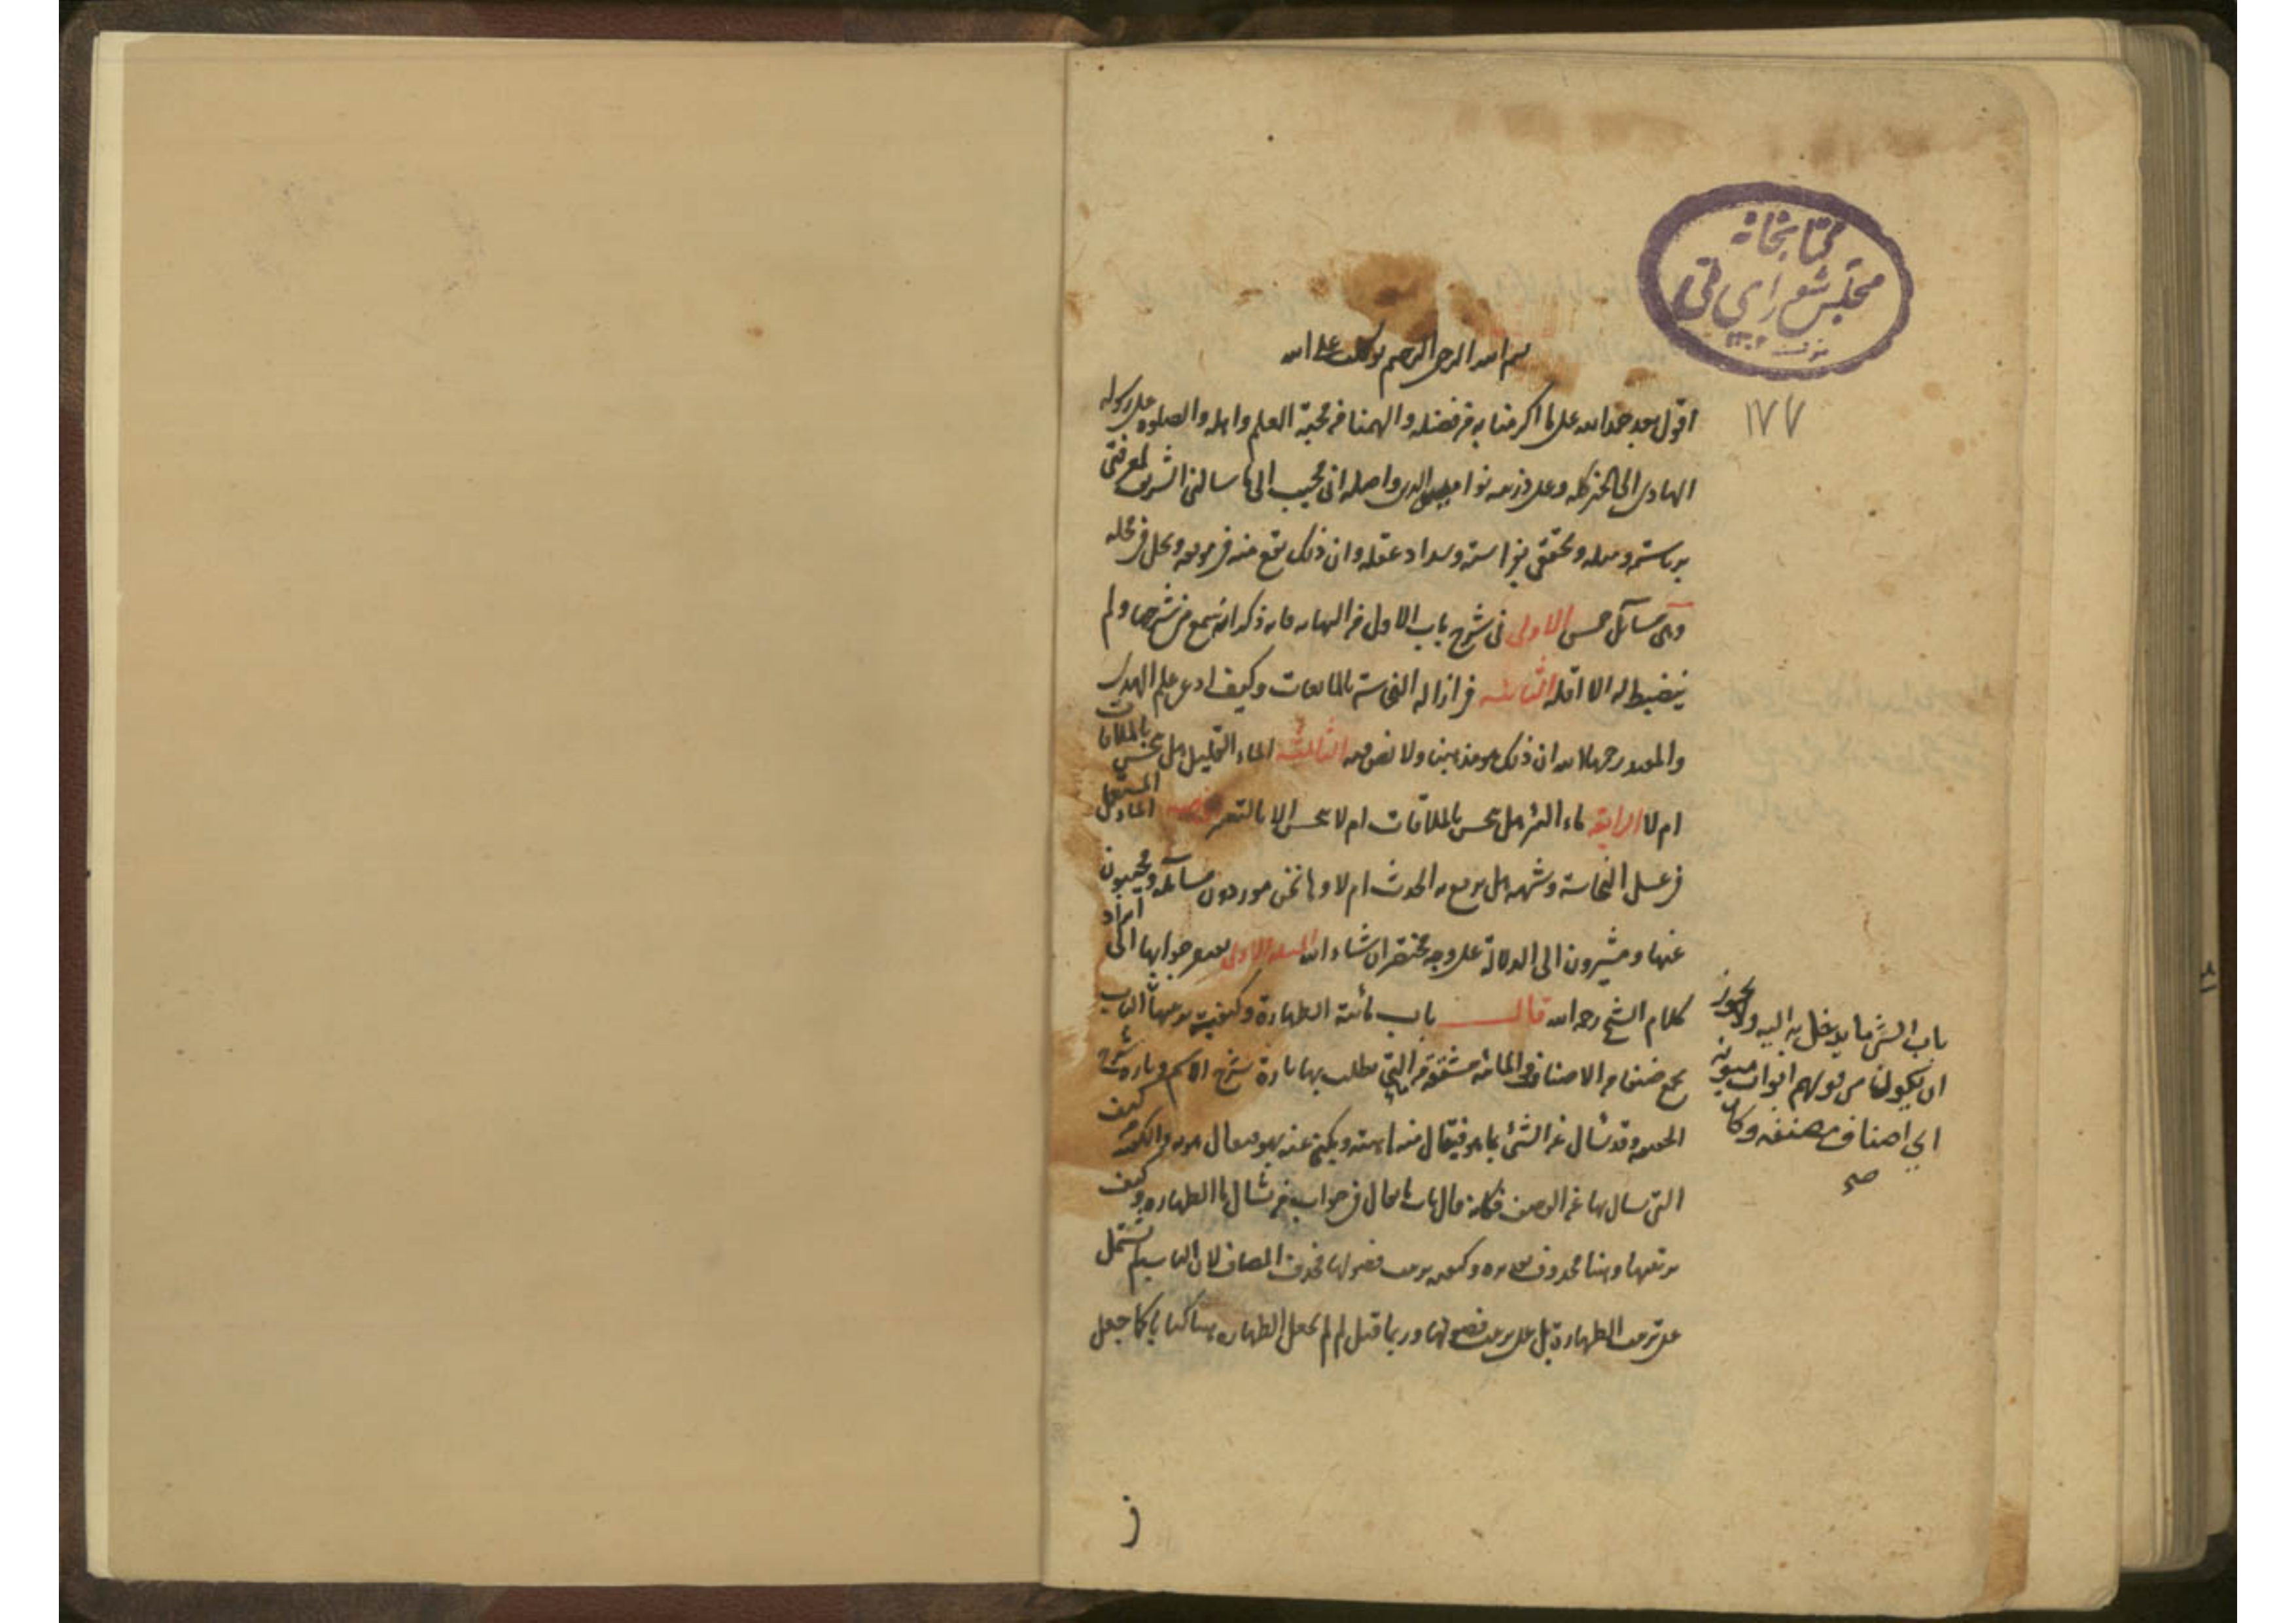 كتابخانه
مجلس شورای ملی
۱۷۷
بسم الله الرحمن الرحيم توكلت على الله
اقول بعد حمد الله على ما اكرمنا به من فضله والهمنا من محبة العلم واهله والصلوة على رسوله
الهادى الى الخير كله وعلى ذريته نواميس الدين واصله انى مجيب الى ما سالنى الشريف لمعرفتى
برياسته و وتحققى بنزاهته وسداد عقله وان ذلك يقع منه فى موقعه ويحل فى محله
وهى مسائل خمس الاولى فى شرح باب الاول من النهايه فانه ذكر انه سمع من شرحها ولم
ينضبط له الا اقله الثانيه فى ازالة النجاسة بالمايعات وكيف ادعى علم الهدى
والمفيد رحمهما الله ان ذلك مذهبنا ولا نص فيه الثالثة الماء القليل هل ينجس بالملاقات
ام لا الرابعة ماء البئر هل ينجس بالملاقات ام لا ينجس الا بالتغير الخامسه الماء المستعمل
فى غسل النجاسة هل يرفع به الحدث ام لا وها نحن موردون مسائله ومجيبون
عنها ومشيرون الى الدلالة على وجه مختصر ان شاء الله المسئلة الاولى جوابها الى ايراد
كلام الشيخ رحمه الله قال باب مائية الطهارة وكيفية ترتيبها الباب
يجمع صنفا من الاصناف والمائية مشتقة من التى يطلب بها تارة شرح الاسم وتارة شرح
الحقيقة وقد يسأل عن الشئ بما هو فيقال منه ماهيته ويكنى عنه بهو فيقال هويه والكيفية من كيف
التى يسال بها عن الوصف فكانه قال باب ما يقال فى جواب من يسأل ما الطهاره وكيف
ترتيبها وهنا محذوف تقديره وكيفية ترتيب فصولها فحذف المضاف لان الباب لم يشتمل
على ترتيب الطهارة بل على ترتيب فصولها وربما قيل لم لم يجعل الطهاره هنا كتابا كما جعل
باب الشئ ما يدخل به اليه ولا يجوز
ان يكون من قولهم ابواب مبوبة
اى اصناف مصنفه وكا
صح